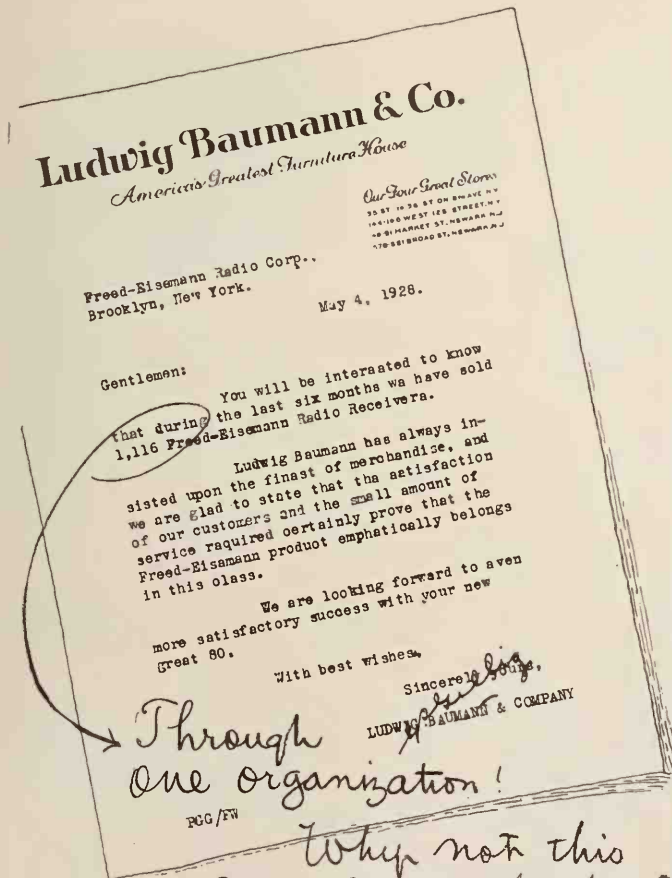 Ludwig Baumann & Co.
America's Greatest Furniture House
Our Four Great Stores
35 ST TO 36 ST ON 8th AVE N.Y
144-146 WEST 125 STREET. N.Y
MARKET ST. NEWARK N.J
BROAD ST. NEWARK N.J
Freed-Eisemann Radio Corp.,
Brooklyn, New York.
May 4, 1928.
Gentlemen:
You will be interaated to know
that during the last six months wa have sold
1,116 Freed-Eisemann Radio Receivera.
Ludwig Baumann has always in-
sisted upon the finast of merchandise, and
we are glad to state that tha aatisfaction
of our customers and the small amount of
service raquired oertainly prove that the
Freed-Eisamann product emphatically belongs
in this olass.
We are looking forward to aven
more satisfactory success with your new
great 80.
With best wishes,
Sincerely yours,
LUDWIG BAUMANN & COMPANY
Through
One organization!
PGG/FW
Why not this